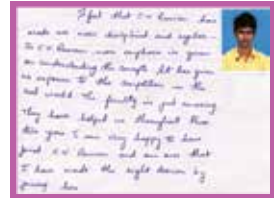 I feel that C V Raman has
made me more disciplined and
In C V Raman more emphasis is given
on understanding the concepts. It has given
us exposure to the competition in the
real world. The faculty is just amazing
They have helped us throughout these
two years I am very happy to have
joined C V Raman and am sure that
I have made the right decision by
joining here